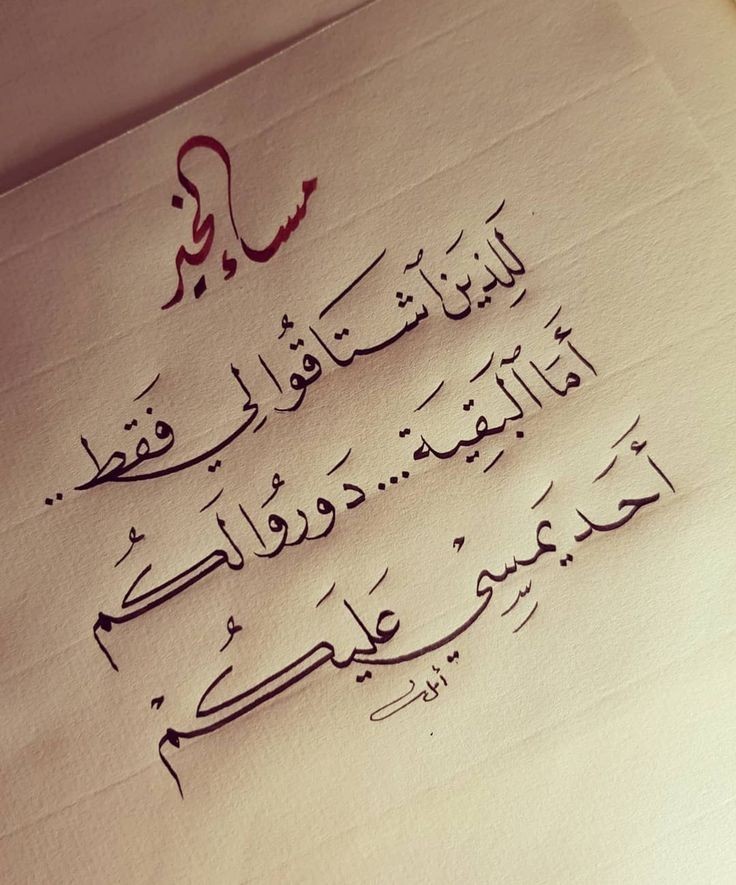 مساء الخير
لِلذِيَن ٱشتَاقُوا لِي فَقط ..
أَمَا ٱلبَقِيَة ... دَورُوا لَكُم
أَحَد يَمسِّيْ عَليَكُمْ